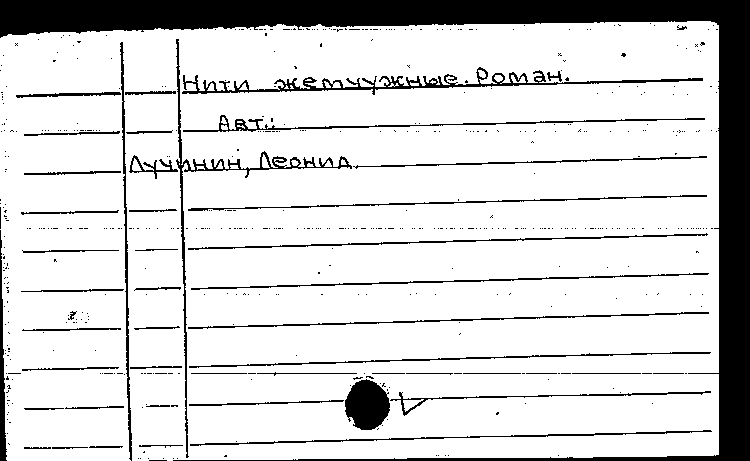 Нити жемчужные. Роман.
Авт.:
Лучинин, Леонид.